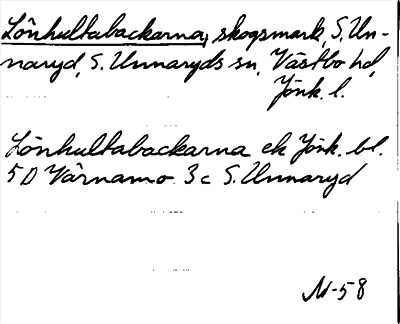 Lönhultabackarna, skogsmark, S. Un-
naryd, S. Unnaryds sn, Västbo hd,
Jönk. l.
Lönhultabackarna ek Jönk. bl.
5D Värnamo 3c S. Unnaryd
M-58